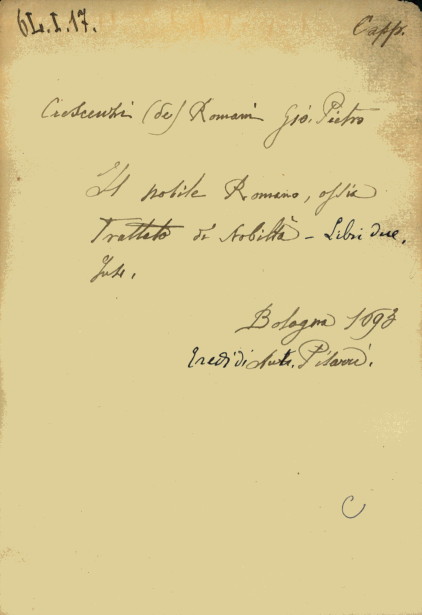 6L.I.17. Capp.
Crescenzi (de) Romani Gio. Pietro
Il nobile Romano, ossia
Trattato di Nobiltà - Libri due.
Bologna 1693
Eredi di Ant. Pisarri.
C